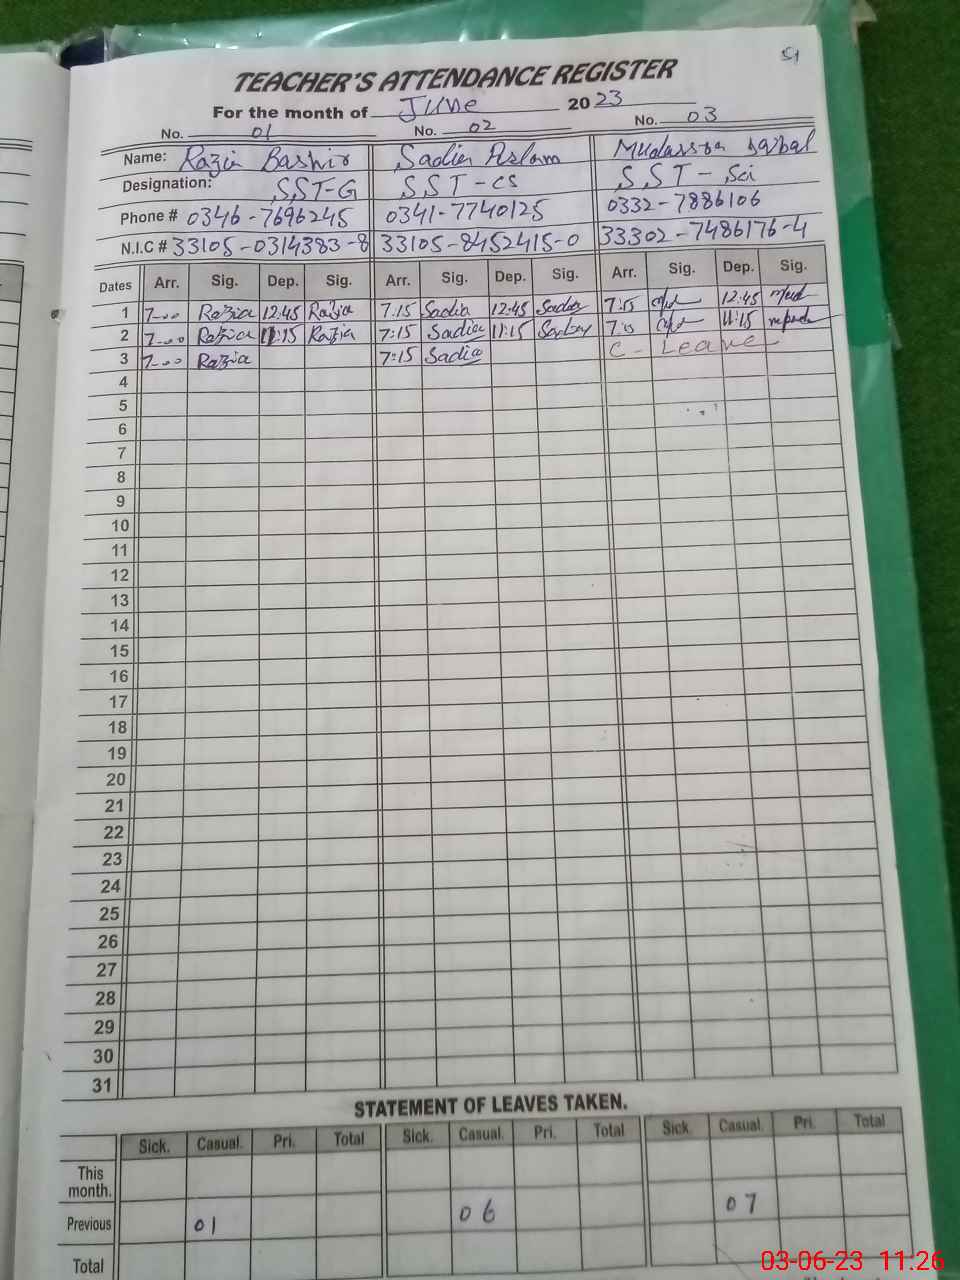 51
TEACHER'S ATTENDANCE REGISTER
For the month of June 2023
No. 01 No. 02 No. 03
Name: Razia Bashir Sadia Aslam Mudassra Iqbal
Designation: SST-G SST-CS SST-Sci
Phone # 0346-7696245 0341-7740125 0332-7886106
N.I.C # 33105-0314383-8 33105-8452415-0 33302-7486176-4
Dates Arr. Sig. Dep. Sig. Arr. Sig. Dep. Sig. Arr. Sig. Dep. Sig.
1 7-00 Razia 12:45 Razia 7:15 Sadia 12:45 Sadia 7:15 12:45
2 7-00 Razia 11:15 Razia 7:15 Sadia 11:15 7:15 11:15
3 7-00 Razia 7:15 Sadia C-Leave
4
5
6
7
8
9
10
11
12
13
14
15
16
17
18
19
20
21
22
23
24
25
26
27
28
29
30
31
STATEMENT OF LEAVES TAKEN.
Sick. Casual. Pri. Total Sick. Casual. Pri. Total Sick. Casual. Pri. Total
This month.
Previous 01 06 07
Total
03-06-23 11.26